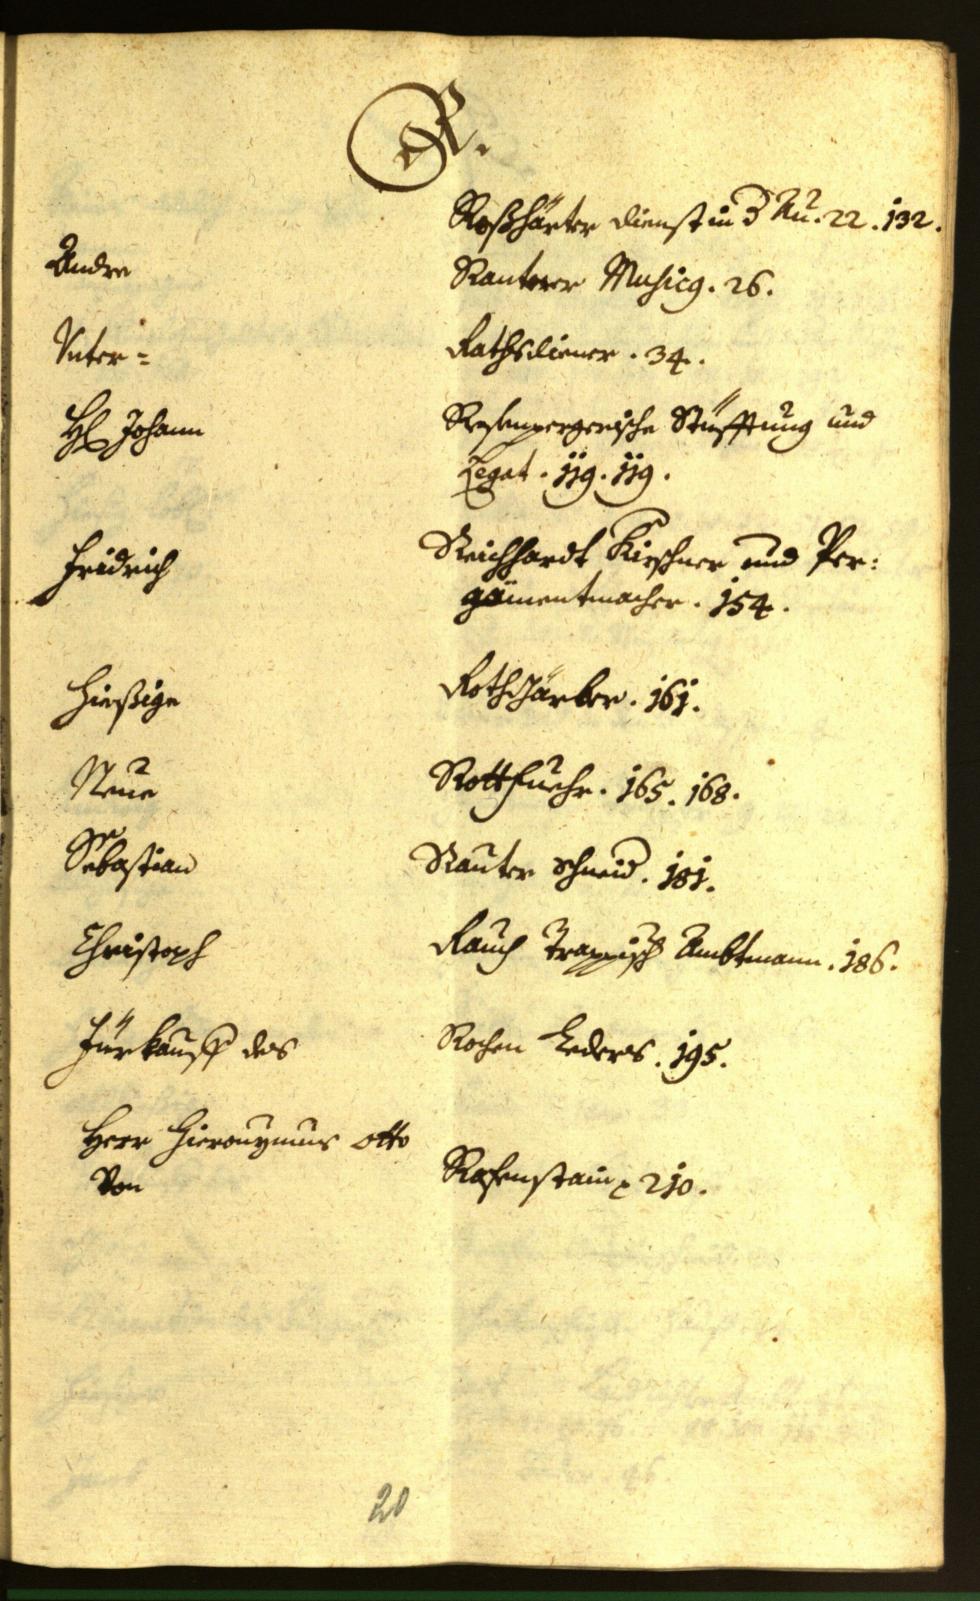 R.
Roßhürter dienst in d Au. 22. 132.
Andre Rauterer Musicg. 26.
Unter= Rathsdiener. 34.
Hl Johann Rosenpergerische Stüfftung und
Legat. 119. 119.
Fridrich Reichhardt Kirschner und Per:
gamentmacher. 154.
Hießige Rothgärber. 161.
Neue Rottfuehr. 165. 168.
Sebastian Rauter schneid. 181.
Christoph Rauch Trappisch Ambtmann. 186.
Fürkauff des Rochen Leders. 195.
Herr Hieronymus Otto
Von Rosenstain 210.
20